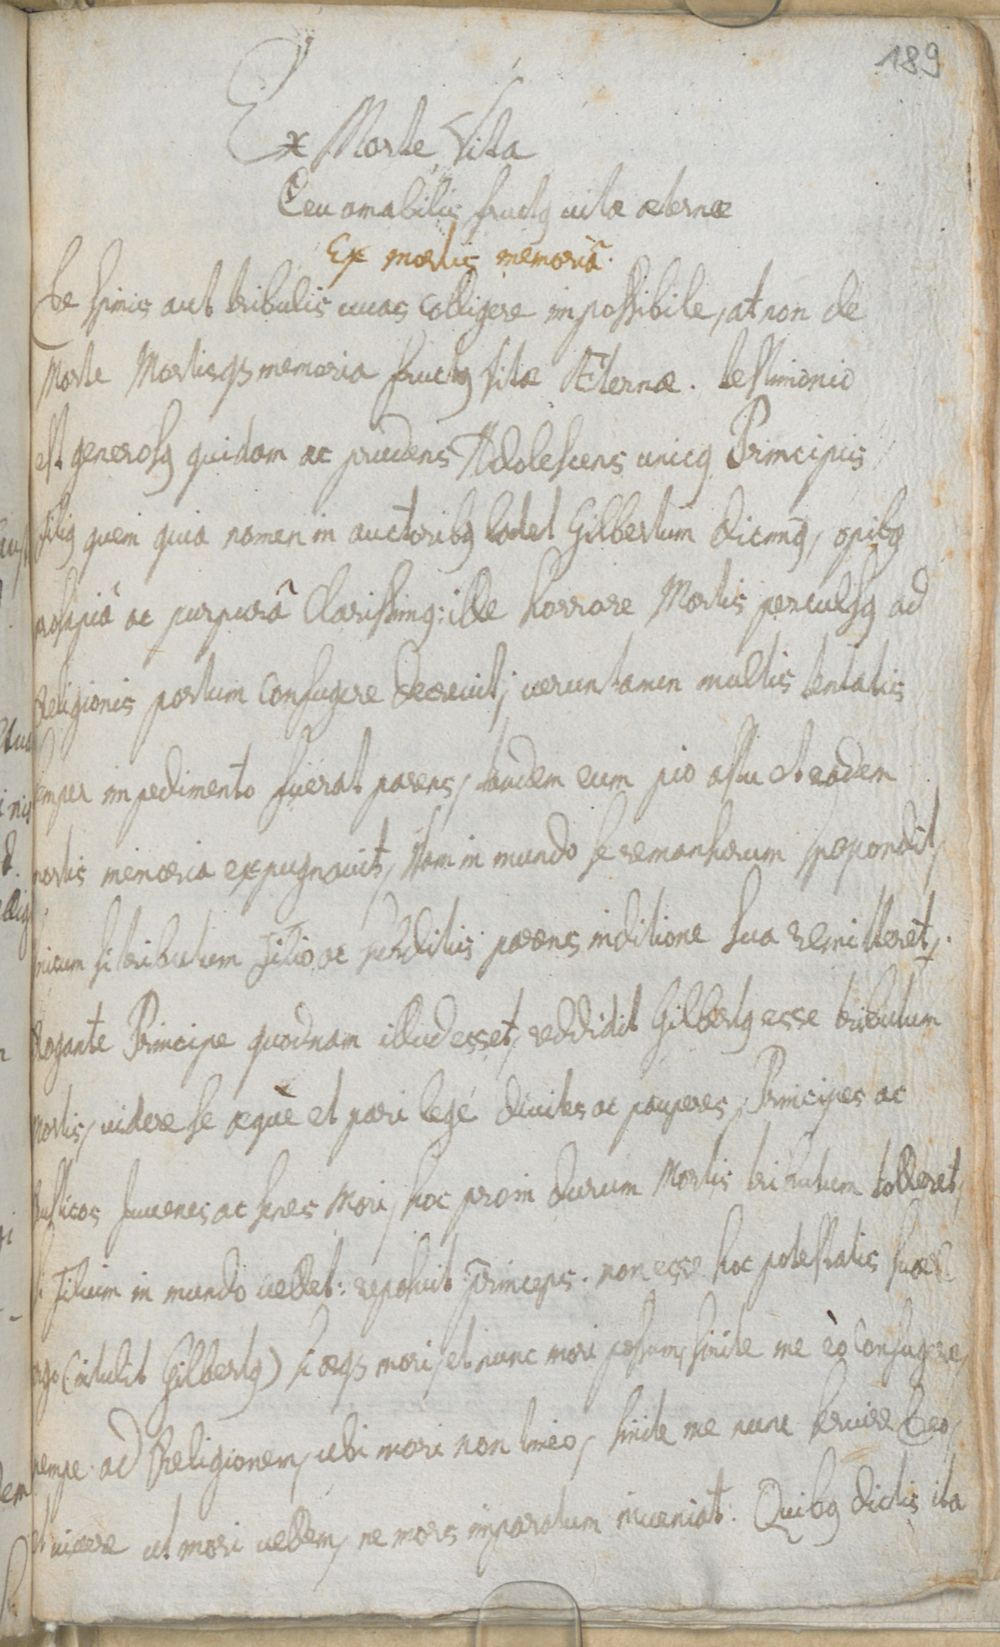 189
Ex Morte Vita
Ceu amabilis fructꝯ vitæ æternæ
Ex mortis memoriâ.
De spinis aut tribulis uuas colligere impossibile, at non de
Morte Mortisqꝫ memoria fructꝯ Vitæ Æternæ. testimonio
est generosꝯ quidam ac prudens Adolescens unicꝯ Principis
filiꝯ quem quia nomen in auctoribꝯ latet Gilbertum dicimꝯ, opibꝯ
prosapiâ ac purpurâ Clarissimꝯ: ille horrore Mortis perculsꝯ ad
Religionis portum confugere decreuit; veruntamen multis tentatis
semper impedimento fuerat parens, tandem eum pio astu et eadem
mortis memoria expugnauit, Nam in mundo se remansurum spopondit,
unicum si tributum Filio ac subditis parens in ditione sua remitteret,
Rogante Principe quodnam illud esset, reddidit Gilbertꝯ esse tributum
Mortis, videre se æquè et pari lege divites ac pauperes, Principes ac
Rusticos Juvenes ac senes Mori, hoc proin durum Mortis tributum tolleret,
si Filium in mundo vellet: reposuit Princeps. non esse hoc potestatis suæ
ergo (intulit Gilbertꝯ) si æqꝫ mori, et nunc mori possum, sinite me eò confugere,
nempe ad Religionem, ubi mori non timeo, sinite me nunc seruire Deo,
et viuere ut mori vellem, ne mors imparatum inueniat. Quibꝯ dictis ita